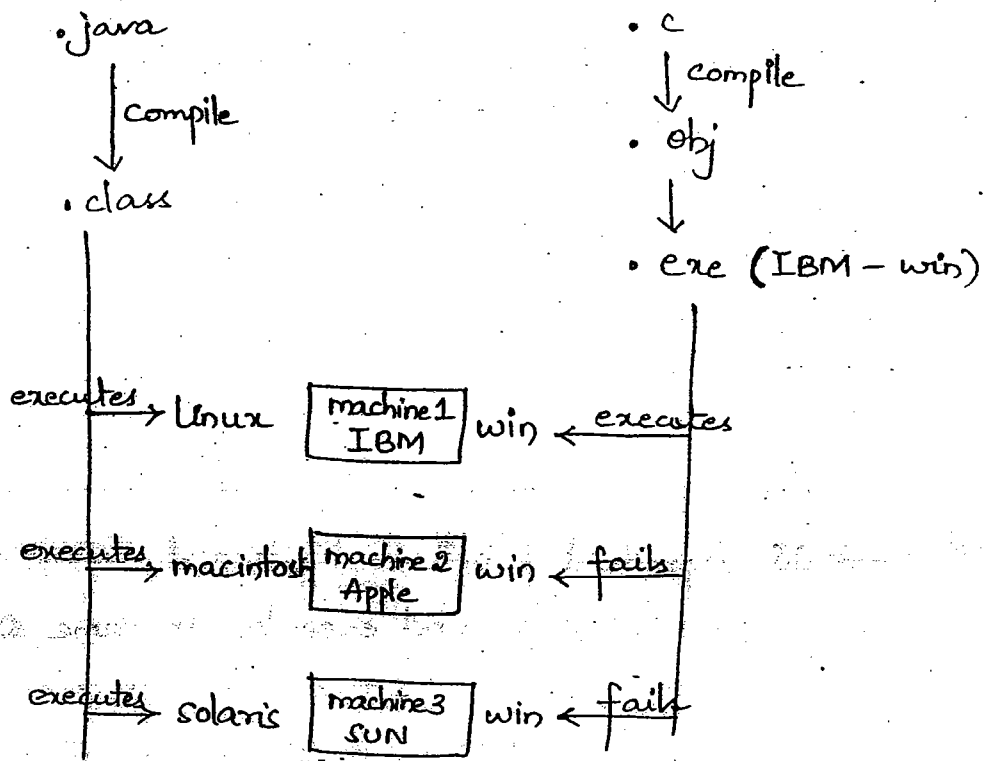 .java
compile
.class
. c
compile
. obj
. exe (IBM - win)
executes
Linux
machine1
IBM
win
executes
executes
macintosh
machine2
Apple
win
fails
executes
solaris
machine3
SUN
win
fails